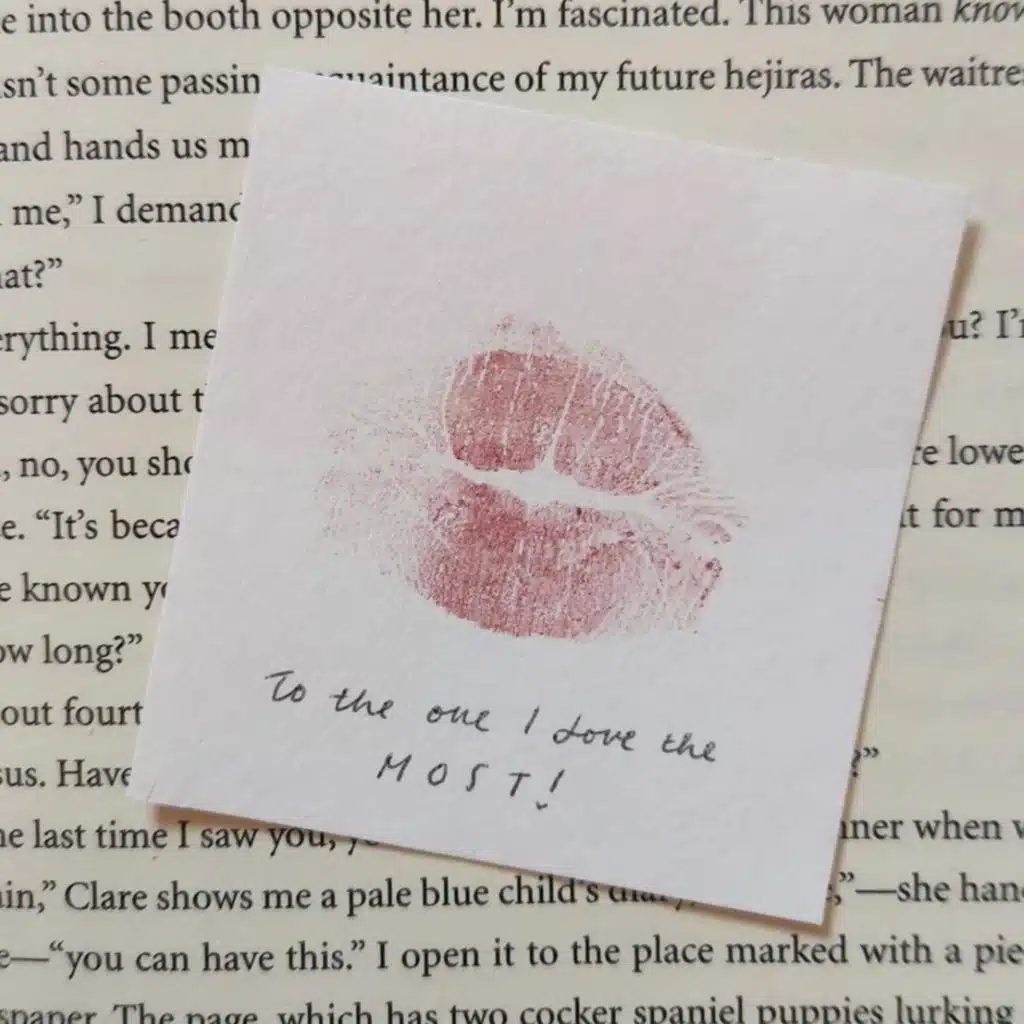 e into the booth opposite her. I'm fascinated. This woman know
sn't some passin uaintance of my future hejiras. The waitre
and hands us m
me,” I demand
at?”
rything. I me u? I'
sorry about t
, no, you sho re lowe
e. “It's beca t for m
e known yo
ow long?”
out fourt
sus. Have ?”
To the one I Love the
MOST!
e last time I saw you, nner when w
in,” Clare shows me a pale blue child's ”—she han
e—“you can have this.” I open it to the place marked with a pie
spaper. The page, which has two cocker spaniel puppies lurking